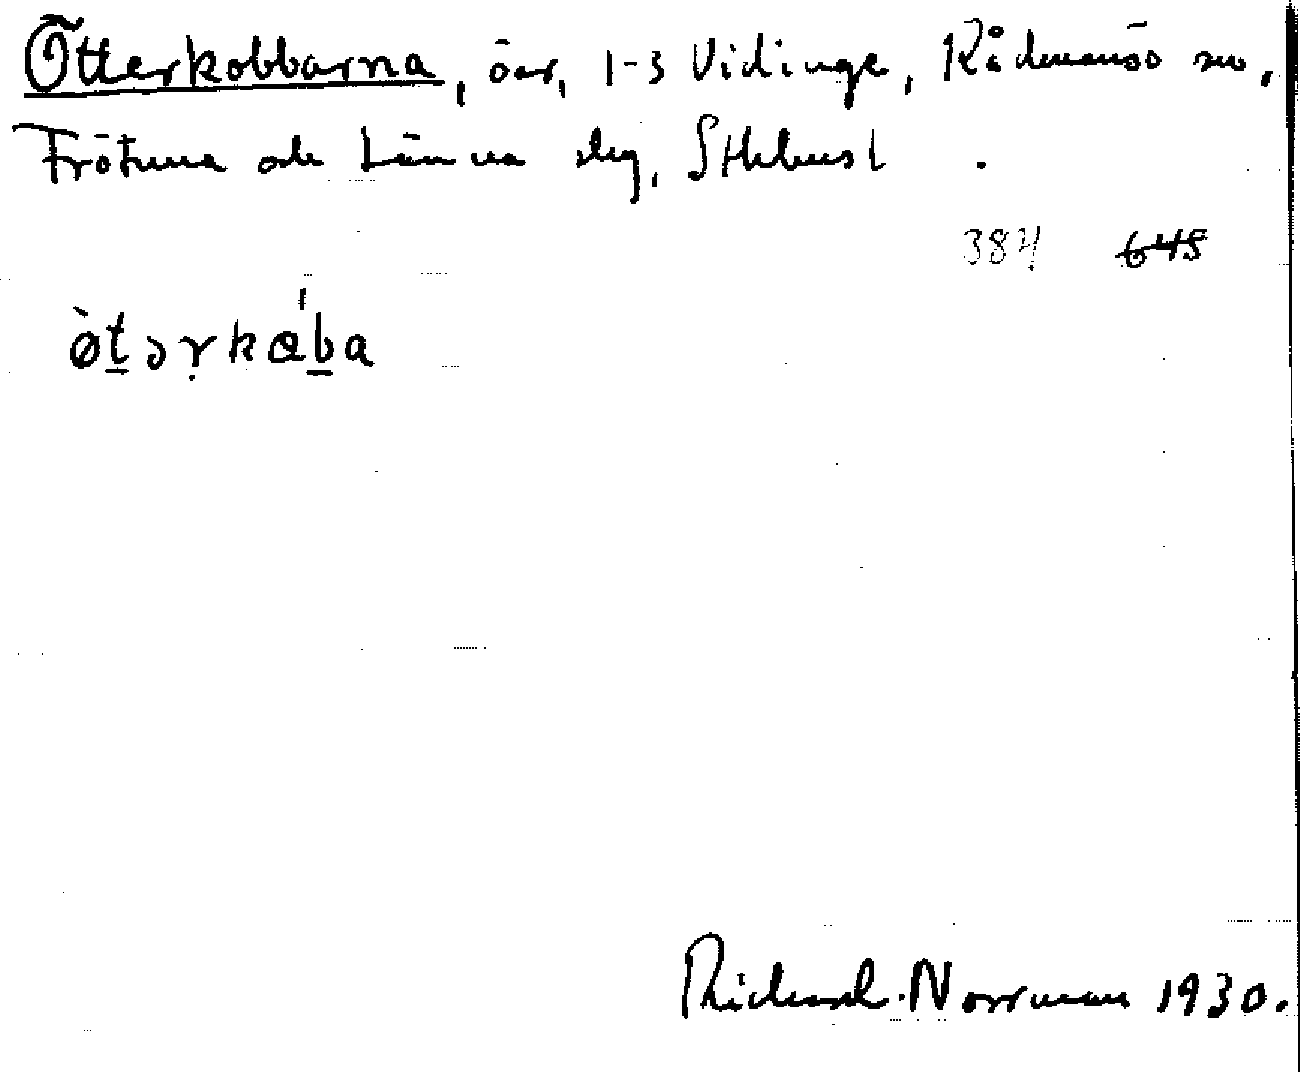 Ötterkobbarna, öar, 1-3 Vidinge, Rådmansö sn,
Frötuna och Länna slg, Sthlms l.
384 645
Richard Norrman 1930.